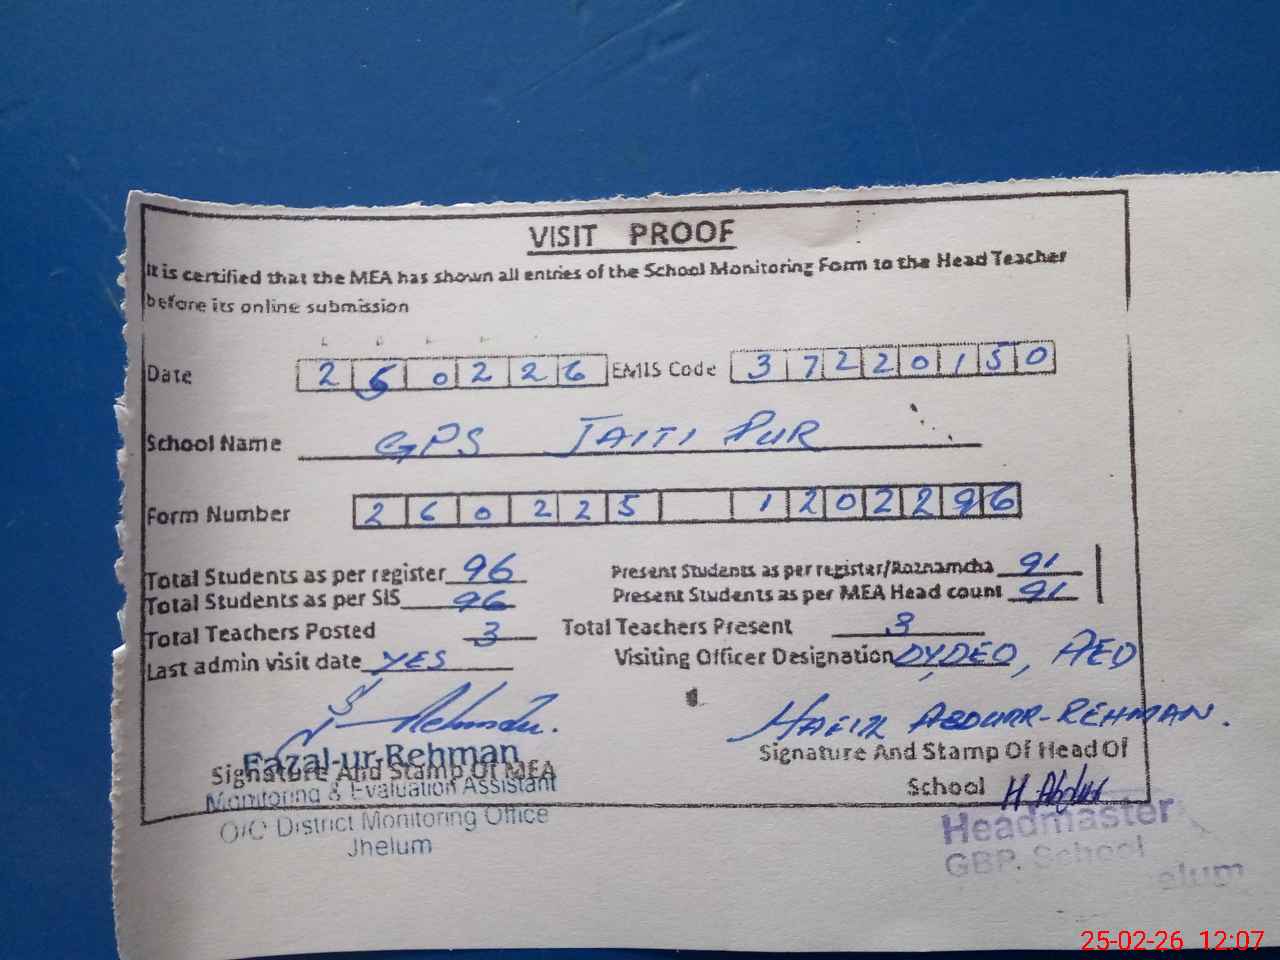 VISIT PROOF
It is certified that the MEA has shown all entries of the School Monitoring Form to the Head Teacher
before its online submission
Date 2 5 0 2 2 6 EMIS Code 3 7 2 2 0 1 5 0
School Name GPS JAITI PUR
Form Number 2 6 0 2 2 5 1 2 0 2 2 9 6
Total Students as per register 96 Present Students as per register/Roznamcha 91
Total Students as per SIS 96 Present Students as per MEA Head count 91
Total Teachers Posted 3 Total Teachers Present 3
Last admin visit date YES Visiting Officer Designation DYDEO, AEO
HAFIZ ABDURR-REHMAN.
Fazal-ur-Rehman
Signature And Stamp Of MEA Signature And Stamp Of Head Of
Monitoring & Evaluation Assistant School H Abdur
O/O District Monitoring Office Headmaster
Jhelum GBP. School
elum
25-02-26 12:07